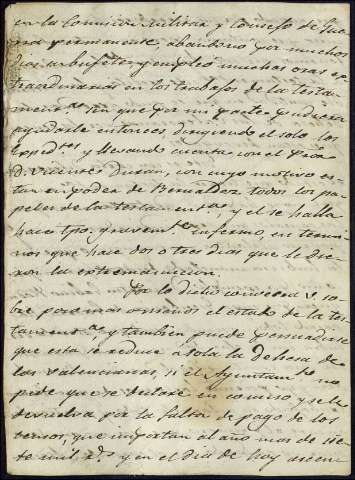 en la Comision Militar y Consejo de Gue-
rra permanente, abandonó por muchos
dias su bufete, y empleó muchas oras ex-
traordinarias en los trabajos de la testa-
ment.ª sin que por mi parte pudiera
ayudarle entonces, dirigiendo el solo los
Exped.tes y llevando cuenta con el Pror.
D. Vicente Duran, con cuyo motivo es-
tan en poder de todos los pa-
peles de la testament.ª, y el se halla
hace tpo. gravem.te enfermo, en termi-
nos que hace dos o tres dias que le die-
ron la extremauncion.
Por lo dicho conocera V. so-
bre poco mas o menos el estado de la tes-
tament.ª, y tambien puede persuadirse
que esta se reduce a sola la dehesa de
las Valencianas, si el Ayuntam.to no
pide que se declare en comiso y se le
devuelva por la falta de pago de los
censos, que importan al año mas de sie-
te mil r.s y en el dia de hoy ascien